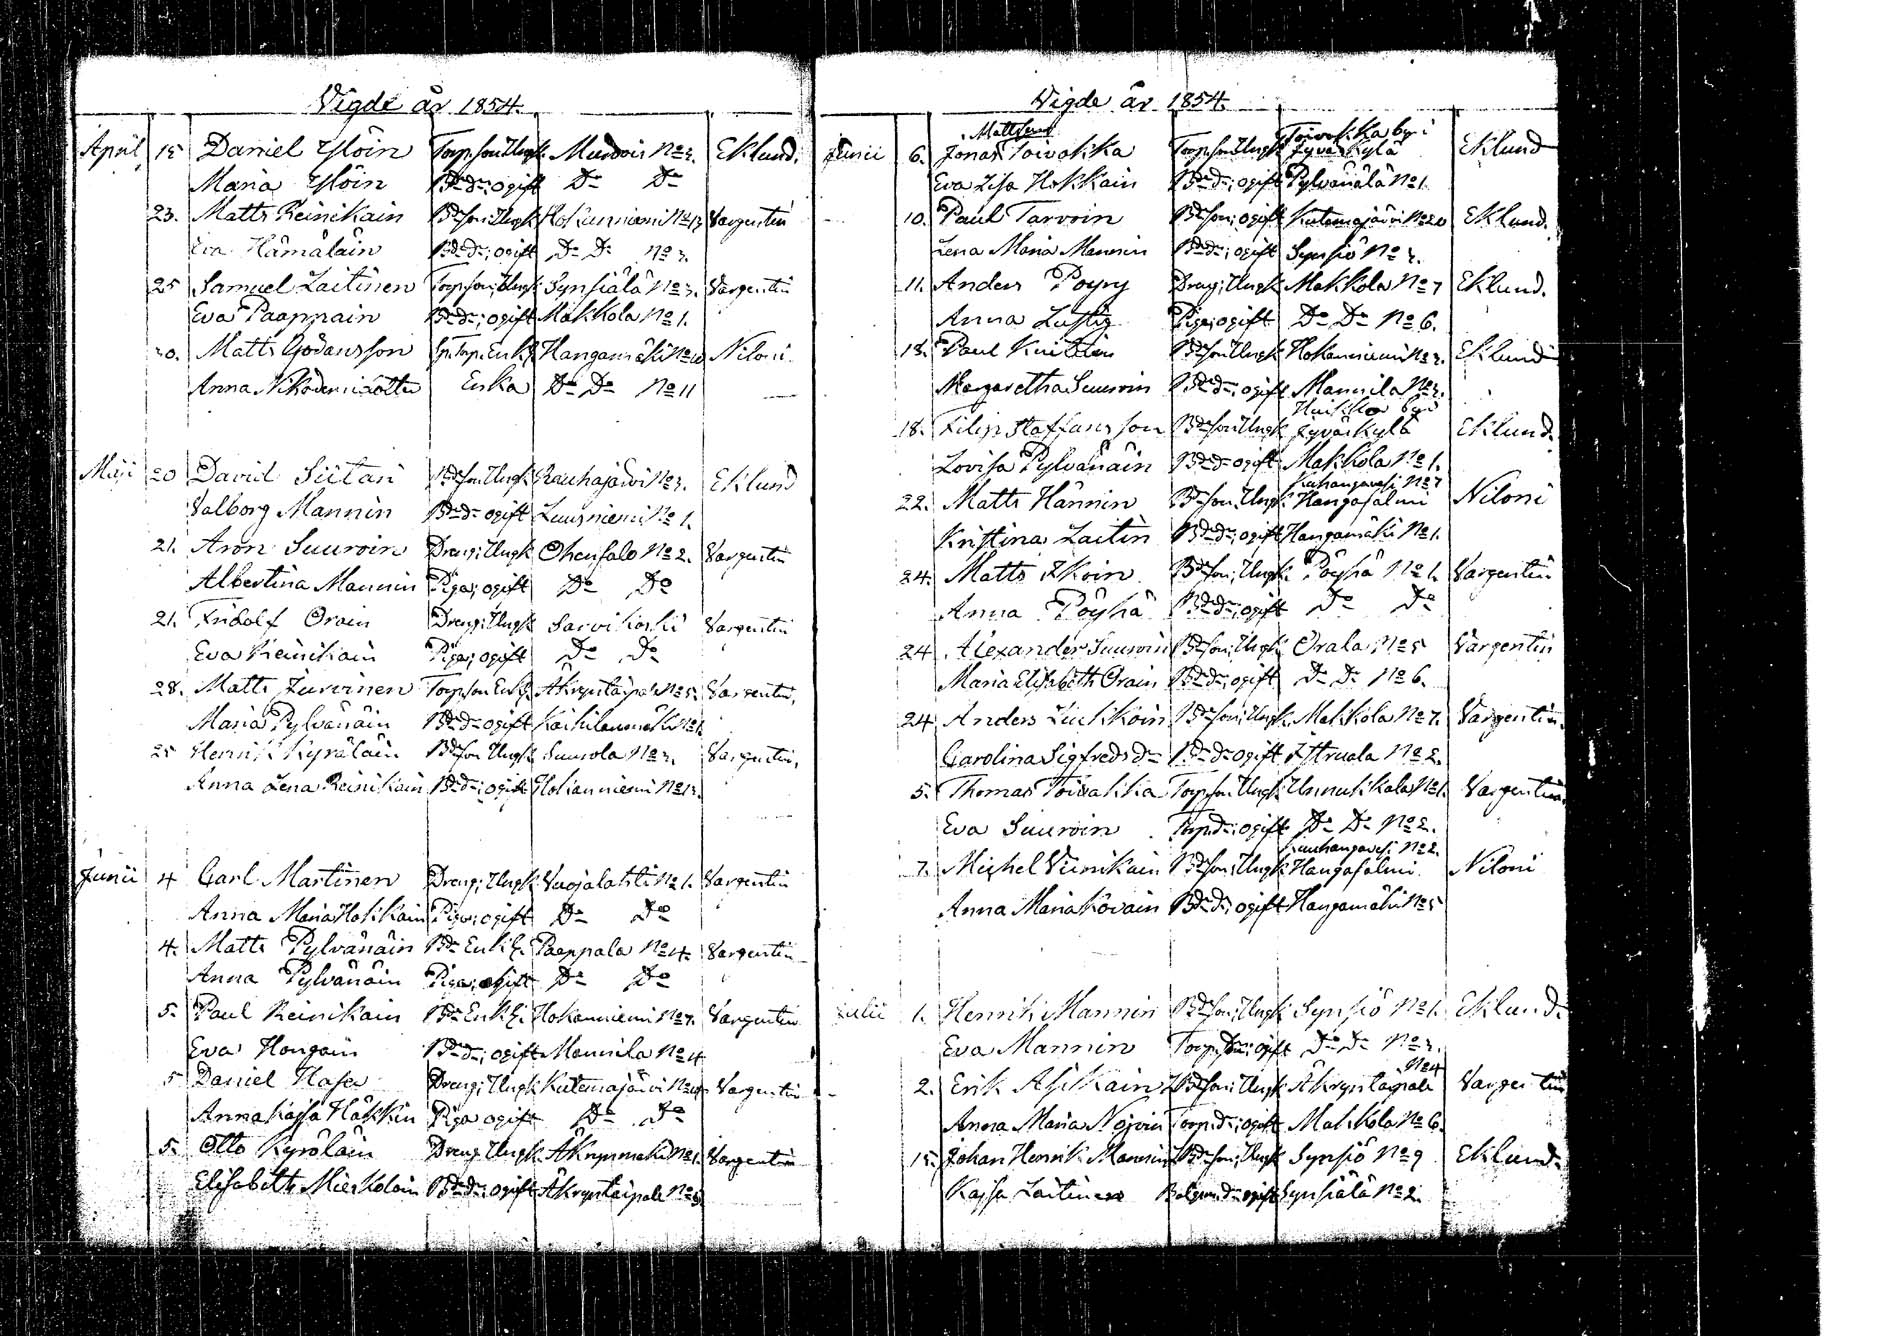 Vigde år 1854.
April 15 Daniel Ylöin Torp.son; Ungk. Murdois No 3. Eklund.
Maria Ylöin Bde dr; ogift Do Do
23. Matts Reinikain Bdeson; Ungk Hokanniemi No 13 Vargentin
Eva Hämäläin Bde dr; ogift Do Do No 3.
25 Samuel Laitinen Torpson; Ungk Synsiälä No 3. Vargentin
Eva Paappain Bde dr; ogift Makkola No 1.
30. Matts Göransson Enkl. Hangamäki No 10 Niloni
Anna Nikodemidotter Enka Do Do No 11
Maji 20 David Siitari Bdeson Ungk Rauhajärvi No 3. Eklund
Valborg Mannin Bde dr ogift Luusniemi No 1.
21. Aron Suuroin Dreng; Ungk Ohensalo No 2. Vargentin
Albertina Mannin Piga; ogift Do Do
21. Fridolf Orain Dreng; Ungk Sarvikoski Vargentin
Eva Reinikain Piga; ogift Do Do
28. Matts Jurvinen Torpson Enkl. Åkryntaipale No 5. Vargentin,
Maria Pylvänäin Bde dr ogift No 1.
25 Henrik Kyröläin Bdeson Ungk Suurola No 3. Vargentin,
Anna Lena Reinikain Bde dr; ogift Hokanniemi No 13.
Junii 4 Carl Martinen Dreng; Ungk Vuojalahti No 1. Vargentin
Anna Maria Hokkain Piga; ogift Do Do
4. Matts Pylvänäin Bde Enkl. Paappala No 4. Vargentin
Anna Pylvänäin Piga; ogift Do Do
5. Paul Reinikain Bde Enkl. Hokanniemi No 7. Vargentin
Eva Hongain Bde dr; ogift Mannila No 4
5 Daniel Hasa Dreng; Ungk Kutemajärvi Vargentin
Anna Kajsa Häkkin Piga ogift Do Do
5. Otto Kyröläin Dreng Ungk Åkrynmäki No 1. Vargentin
Elisabeth Mieskolain Bde dr; ogift Åkryntaipale
Vigde år 1854.
Mattsson Toivakka by i
Junii 6. Jonas Toivakka Torpson; Ungk Jyväskylä Eklund
Eva Lisa Hokkain Bde dr; ogift Pylvänälä No 1.
10. Paul Tarvoin Bdeson; ogift Kutemajärvi No 20 Eklund.
Lena Maria Mannin Bde dr; ogift Synsiö No 3.
11. Anders Pöyry Dreng; Ungk Makkola No 7 Eklund.
Anna Lustig Piga; ogift Do Do No 6.
18. Paul Bdeson Ungk Hokanniemi No 3. Eklund
Margaretha Suuroin Bde dr; ogift Mannila No 3.
by i
18. Filip Staffansson Bdeson Ungk Jyväskylä Eklund.
Lovisa Pylvänäin Bde dr ogift Makkola No 1.
Kuuhangavesi No 7
22. Matts Hännin Bdeson Ungk Hangasalmi Niloni
Kristina Laitin Bde dr; ogift Hangamäki No 1.
24. Matts Ikoin Bdeson; Ungk Pöyhä No 1. Vargentin
Anna Pöyhä Bde dr; ogift Do Do
24 Alexander Suuroin Bdeson; Ungk Orala No 5 Vargentin
Maria Elisabeth Orain Bde dr; ogift Do Do No 6.
24 Anders Liukkoin Bdeson; Ungk Makkola No 7. Vargentin.
Carolina Sigfreds dr Bde dr ogift Istruala No 2.
5. Thomas Toivakka Torpson; Ungk Unnukkala No 1. Vargentin
Eva Suuroin Torp.dr; ogift Do Do No 2.
Kuuhangavesi No 2.
7. Michel Viinikain Bdeson; Ungk Hangasalmi Niloni
Anna Maria Kovain Bde dr; ogift Hangamäki No 5
Julii 1. Henrik Mannin Bdeson; Ungk Synsiö No 1. Eklund.
Eva Mannin Torp.dr; ogift Do Do No 3.
No 4
2. Erik Asikain Bdeson; Ungk Åkryntaipale Vargentin
Anna Maria Nojoin Torp.dr; ogift Makkola No 6.
15. Johan Henrik Mannin Bdeson; Ungk Synsiö No 9 Eklund.
Kajsa Laitinen dr ogift Synsiälä No 2.